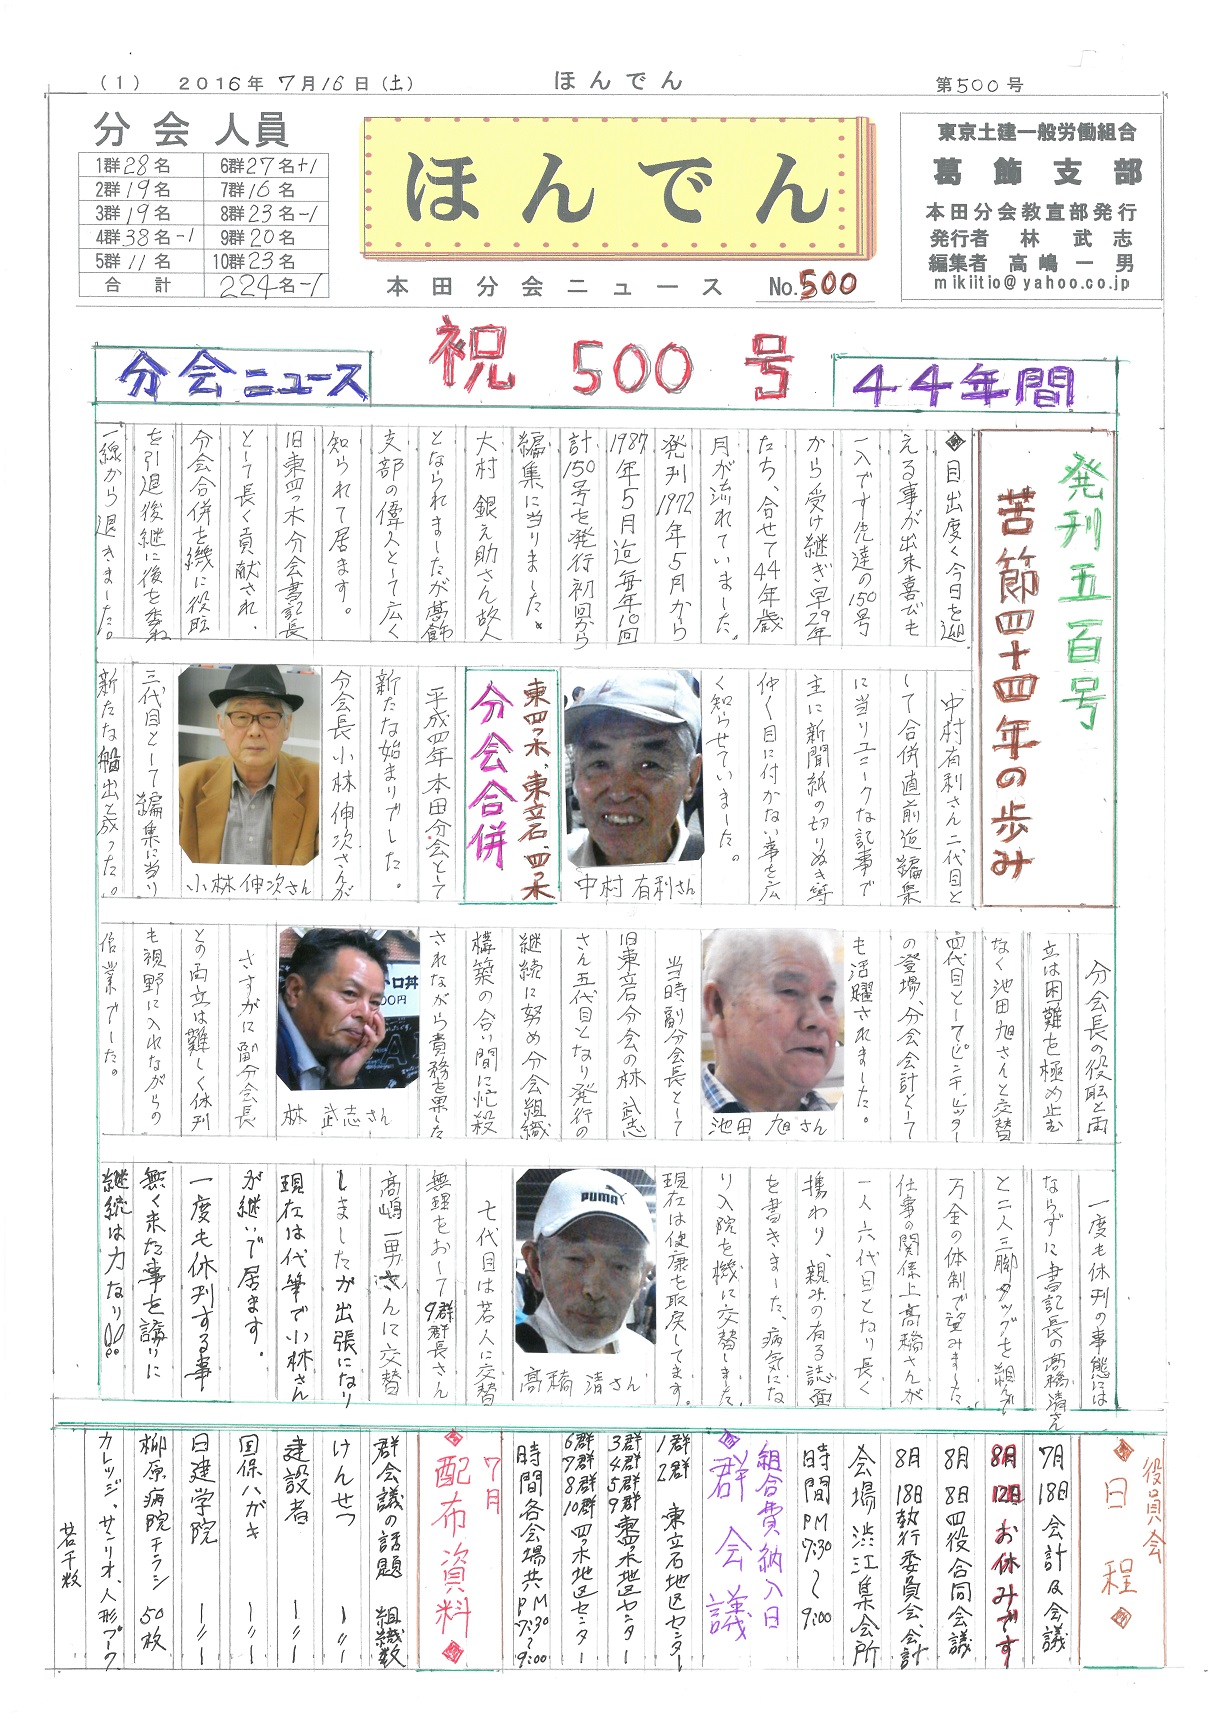 (1) 2016年 7月16日(土) ほんでん 第500号
分会人員
1群28名 6群27名+1
2群19名 7群16名
3群19名 8群23名-1
4群38名-1 9群20名
5群11名 10群23名
合計 224名-1
ほんでん
本田分会ニュース No.500
東京土建一般労働組合
葛飾支部
本田分会教宣部発行
発行者 林 武志
編集者 高嶋一男
mikiitio@yahoo.co.jp
分会ニュース
祝 500 号
44年間
発刊五百号
苦節四十四年の歩み
◆目出度く今日を迎
える事が出来喜びも
一入です先達の150号
から受け継ぎ早29年
たち、合せて44年歳
月が流れていました。
発刊1972年5月から
1987年5月迄毎年10回
計150号を発行初回から
編集に当りました。
大村銀え助さん故人
となられましたが葛飾
支部の偉人として広く
知られて居ます。
旧東四つ木分会書記長
として長く貢献され、
分会合併を機に役職
を引退後継に後を委ね
一線から退きました。
中村有利さん二代目と
して合併直前迄編集
に当りユニークな記事で
主に新聞紙の切りぬき等
仲々目に付かない事を広
く知らせていました。
中村 有利さん
東四つ木、東立石、四つ木
分会合併
平成四年本田分会として
新たな始まりでした。
分会長小林伸次さんが
小林伸次さん
三代目として編集に当り
新たな船出と成った。
分会長の役職と両
立は困難を極め止む
なく池田旭さんと交替
四代目としてピンチヒッター
の登場、分会会計として
も活躍されました。
池田 旭さん
当時副分会長として
旧東立石分会の林武志
さん五代目となり発行の
継続に努め分会組織
構築の合い間に忙殺
されながら責務を果した
林 武志さん
さすがに副分会長
との両立は難しく休刊
も視野に入れながらの
作業でした。
一度も休刊の事態には
ならずに書記長の髙橋清さん
と二人三脚タッグを組んで
万全の体制で望みました
仕事の関係上髙橋さんが
一人六代目となり長く
携わり、親みの有る誌面
を書きました、病気にな
り入院を機に交替しました
現在は健康を取戻してます。
髙橋 清さん
七代目は若人に交替
無理をおして9群群長さん
高嶋一男さんに交替
しましたが出張になり
現在は代筆で小林さん
が継いで居ます。
一度も休刊する事
無く来た事を誇りに
継続は力なり。
役員会
◆日程◆
7月18日会計及会議
8月12日お休みです
8月8日四役合同会議
8月18日執行委員会、会計
会場渋江集会所
時間PM7:30〜9:00
組合費納入日
◆群会議
1群2群 東立石地区センター
3群4群5群9群東四つ木地区センター
6群7群8群10群四つ木地区センター
時間各会場共PM7:30〜9:00
7月
◆配布資料◆
群会議の話題 組織数
けんせつ 〃
建設者 〃
国保ハガキ 〃
日建学院 〃
柳原病院チラシ 50枚
カレッジ、サンリオ、人形プーク
若干数
PUMA